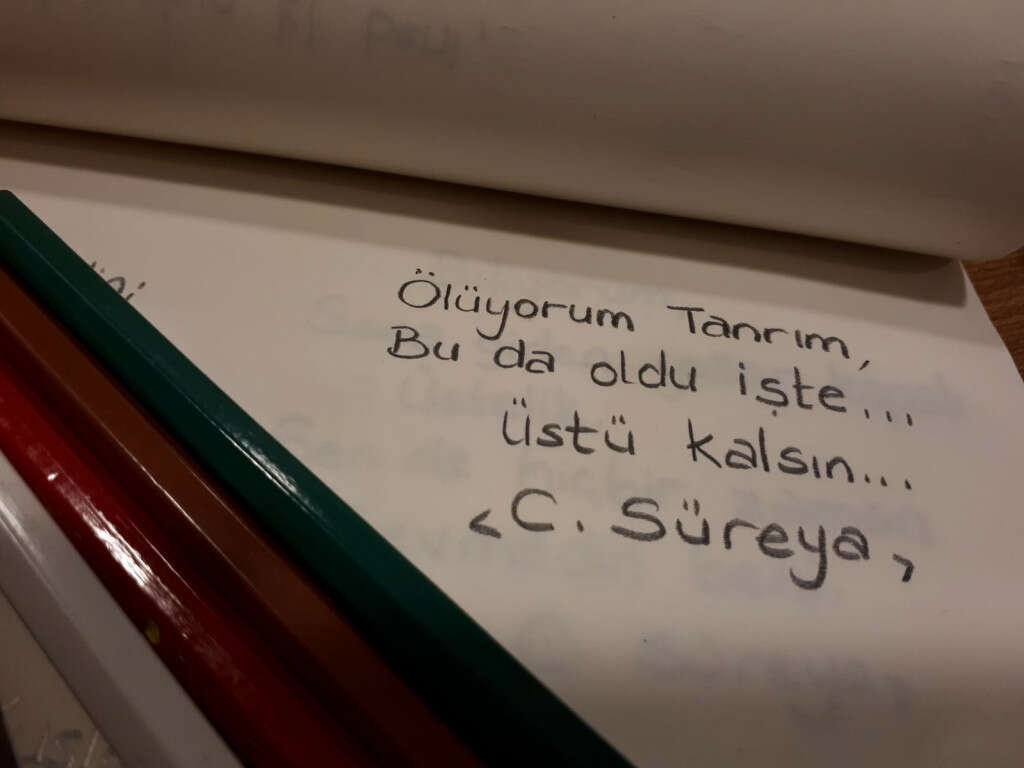 Ölüyorum Tanrım,
Bu da oldu işte...
Üstü kalsın...
<C. Süreya,